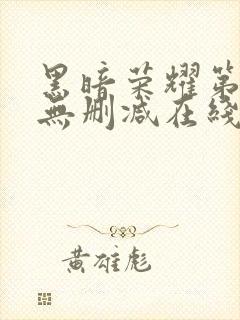 黑暗荣耀第
無删减在綫
黄雄彪